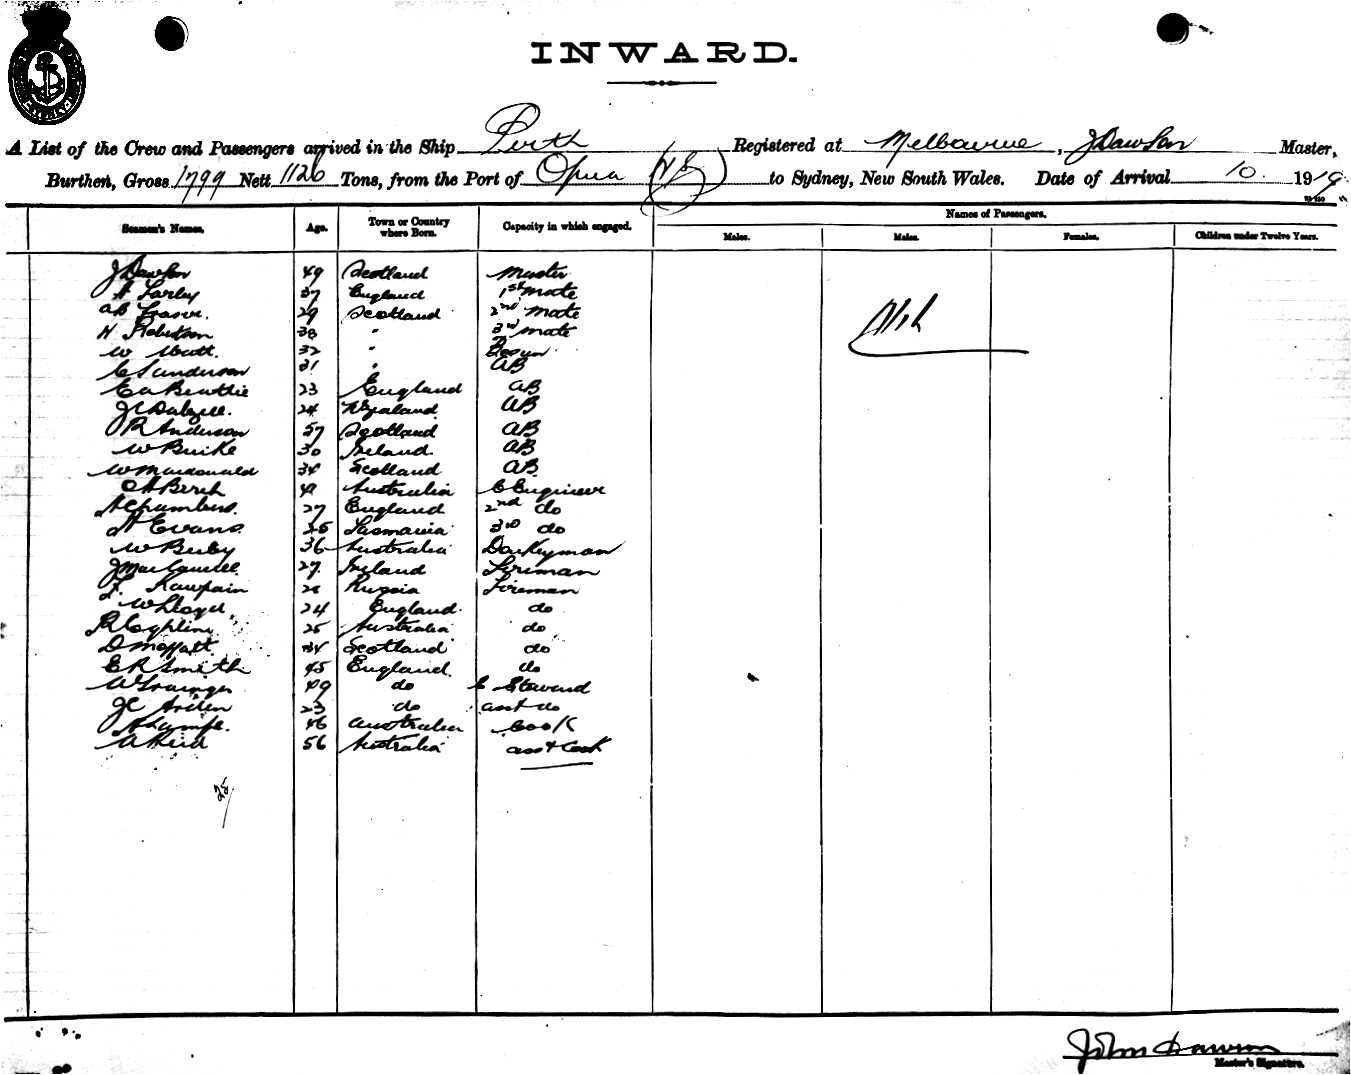 INWARD.
A List of the Crew and Passengers arrived in the Ship Perth Registered at Melbourne, J Dawson Master,
Burthen, Gross 1799 Nett 1126 Tons, from the Port of Opua (NZ) to Sydney, New South Wales. Date of Arrival 10. 1919
Names of Passengers.
Seamen's Names. Age. Town or Country where Born. Capacity in which engaged. Males. Males. Females. Children under Twelve Years.
J Dawson 49 Scotland Master
37 England 1st mate
AB Fraser. 29 Scotland 2nd mate
H Robertson 38 " 3rd mate
W 32 " Bosun
C Sanderson 31 " AB
E A Beattie 23 England AB
J C Dalzell. 24 N Zealand AB
J R Anderson 57 Scotland AB
W Burke 30 Ireland. AB
W Macdonald 34 Scotland AB
Nil
C A Berch Australia C Engineer
A Chambers. 27 England 2nd do
H Evans. 25 Tasmania 3rd do
W 36 Australia Donkeyman
J 27. Ireland Fireman
F. Russia Fireman
W Lloyd, 24 England. do
R Coghlin 25 Australia do
D Moffatt 34 Scotland do
E R Smith 45 England. do
W Grainger 49 do C Steward
J C Arden 23 do asst do
46 Australia Cook
A Reid 56 Australia asst Cook
25
John Dawson
Master's Signature.